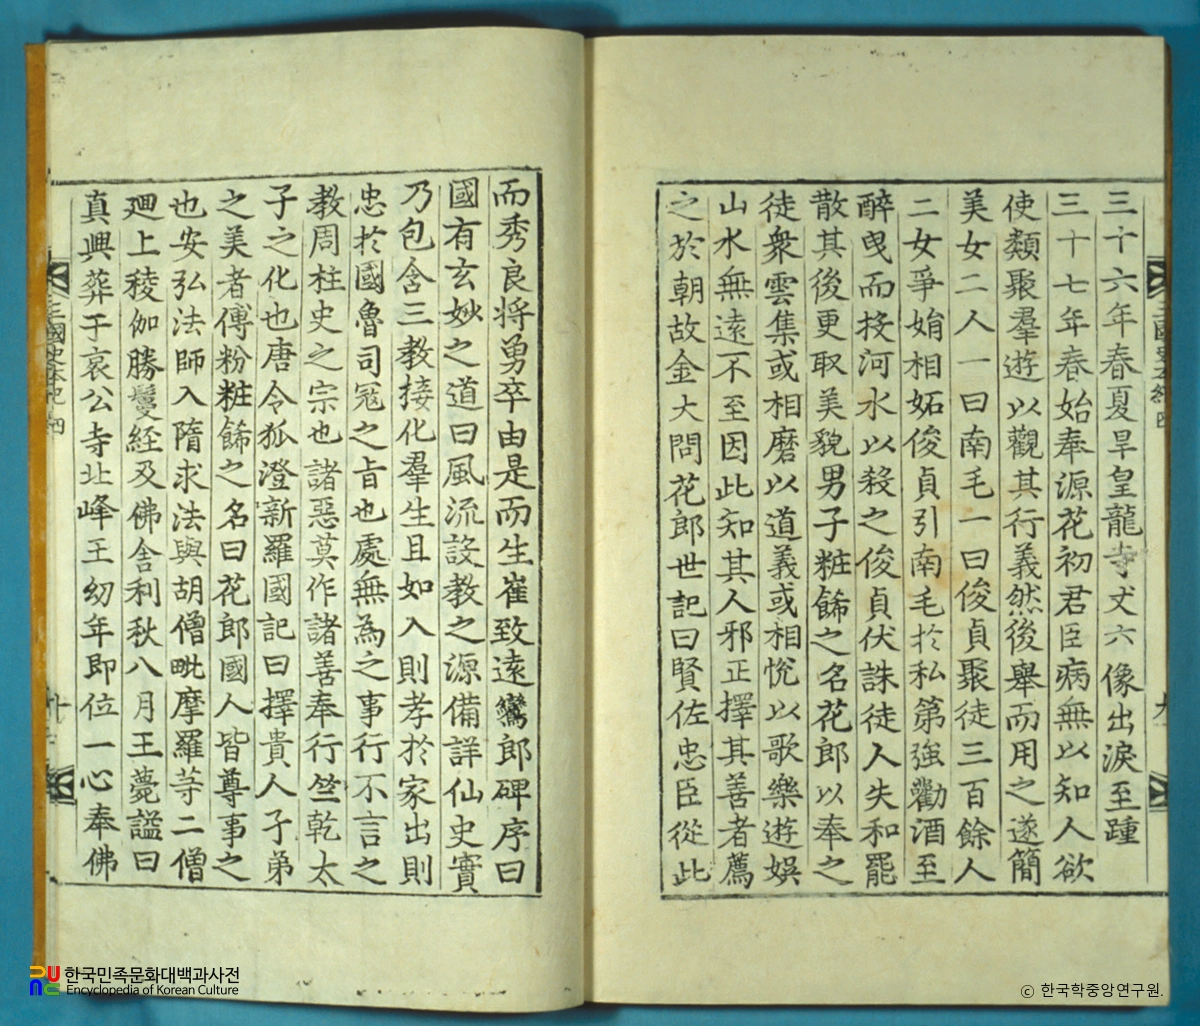 三十六年春夏旱皇龍寺丈六像出淚至踵
三十七年春始奉源花初君臣病無以知人欲
使類聚羣遊以觀其行義然後舉而用之遂簡
美女二人一曰南毛一曰俊貞聚徒三百餘人
二女爭娟相妬俊貞引南毛於私第強勸酒至
醉曳而投河水以殺之俊貞伏誅徒人失和罷
散其後更取美貌男子粧餙之名花郎以奉之
徒衆雲集或相磨以道義或相悅以歌樂遊娛
山水無遠不至因此知其人邪正擇其善者薦
之於朝故金大問花郎世記曰賢佐忠臣從此
而秀良將勇卒由是而生崔致遠鸞郎碑序曰
國有玄妙之道曰風流設教之源備詳仙史實
乃包含三教接化羣生且如入則孝於家出則
忠於國魯司冦之旨也處無為之事行不言之
教周柱史之宗也諸惡莫作諸善奉行竺乾太
子之化也唐令狐澄新羅國記曰擇貴人子弟
之美者傅粉粧餙之名曰花郎國人皆尊事之
也安弘法師入隋求法與胡僧毗摩羅等二僧
廻上稜伽勝鬘經及佛舍利秋八月王薨諡曰
真興葬于哀公寺北峰王幼年即位一心奉佛
三國史本紀四
한국민족문화대백과사전
Encyclopedia of Korean Culture
ⓒ 한국학중앙연구원.